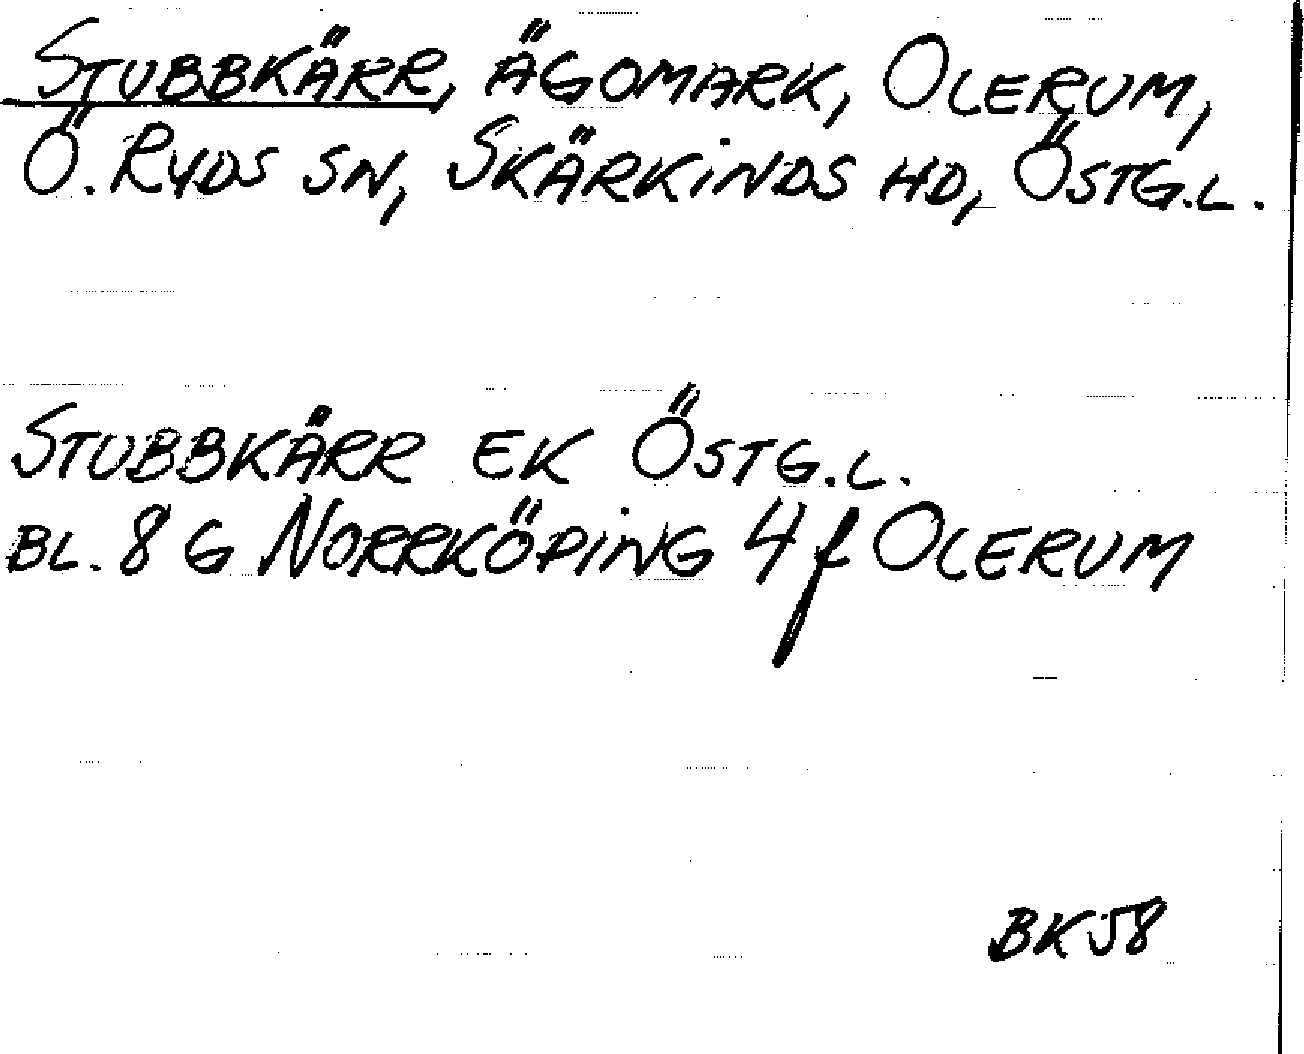 STUBBKÄRR, ÄGOMARK, OLERUM,
Ö. RYDS SN, SKÄRKINDS HD, ÖSTG.L.
STUBBKÄRR EK ÖSTG.L.
BL. 8 G NORRKÖPING 4 f OLERUM
BK 58